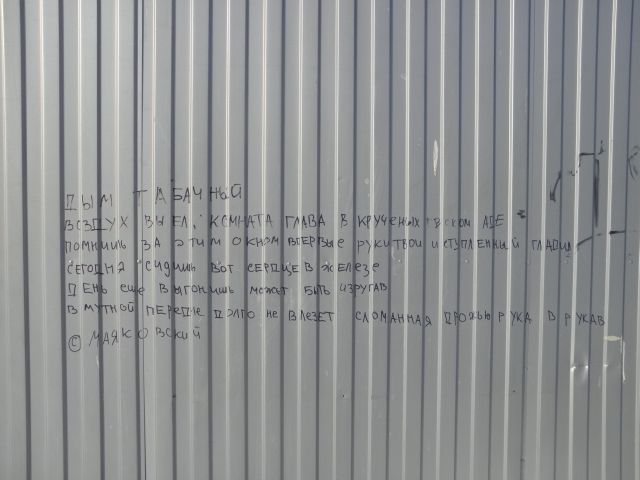 ДЫМ ТАБАЧНЫЙ
ВОЗДУХ ВЫЕЛ, КОМНАТА ГЛАВА В КРУЧЕНЫХОВСКОМ АДЕ
ПОМНИШЬ ЗА ЭТИМ ОКНОМ ВПЕРВЫЕ РУКИ ТВОИ ИСТУПЛЕННЫЙ ГЛАДИЛ
СЕГОДНЯ СИДИШЬ ВОТ СЕРДЦЕ В ЖЕЛЕЗЕ
ДЕНЬ ЕЩЕ ВЫГОНИШЬ МОЖЕТ БЫТЬ ИЗРУГАВ
В МУТНОЙ ПЕРЕДНЕ ДОЛГО НЕ ВЛЕЗЕТ СЛОМАННАЯ ДРОЖЬЮ РУКА В РУКАВ
© МАЯКОВСКИЙ